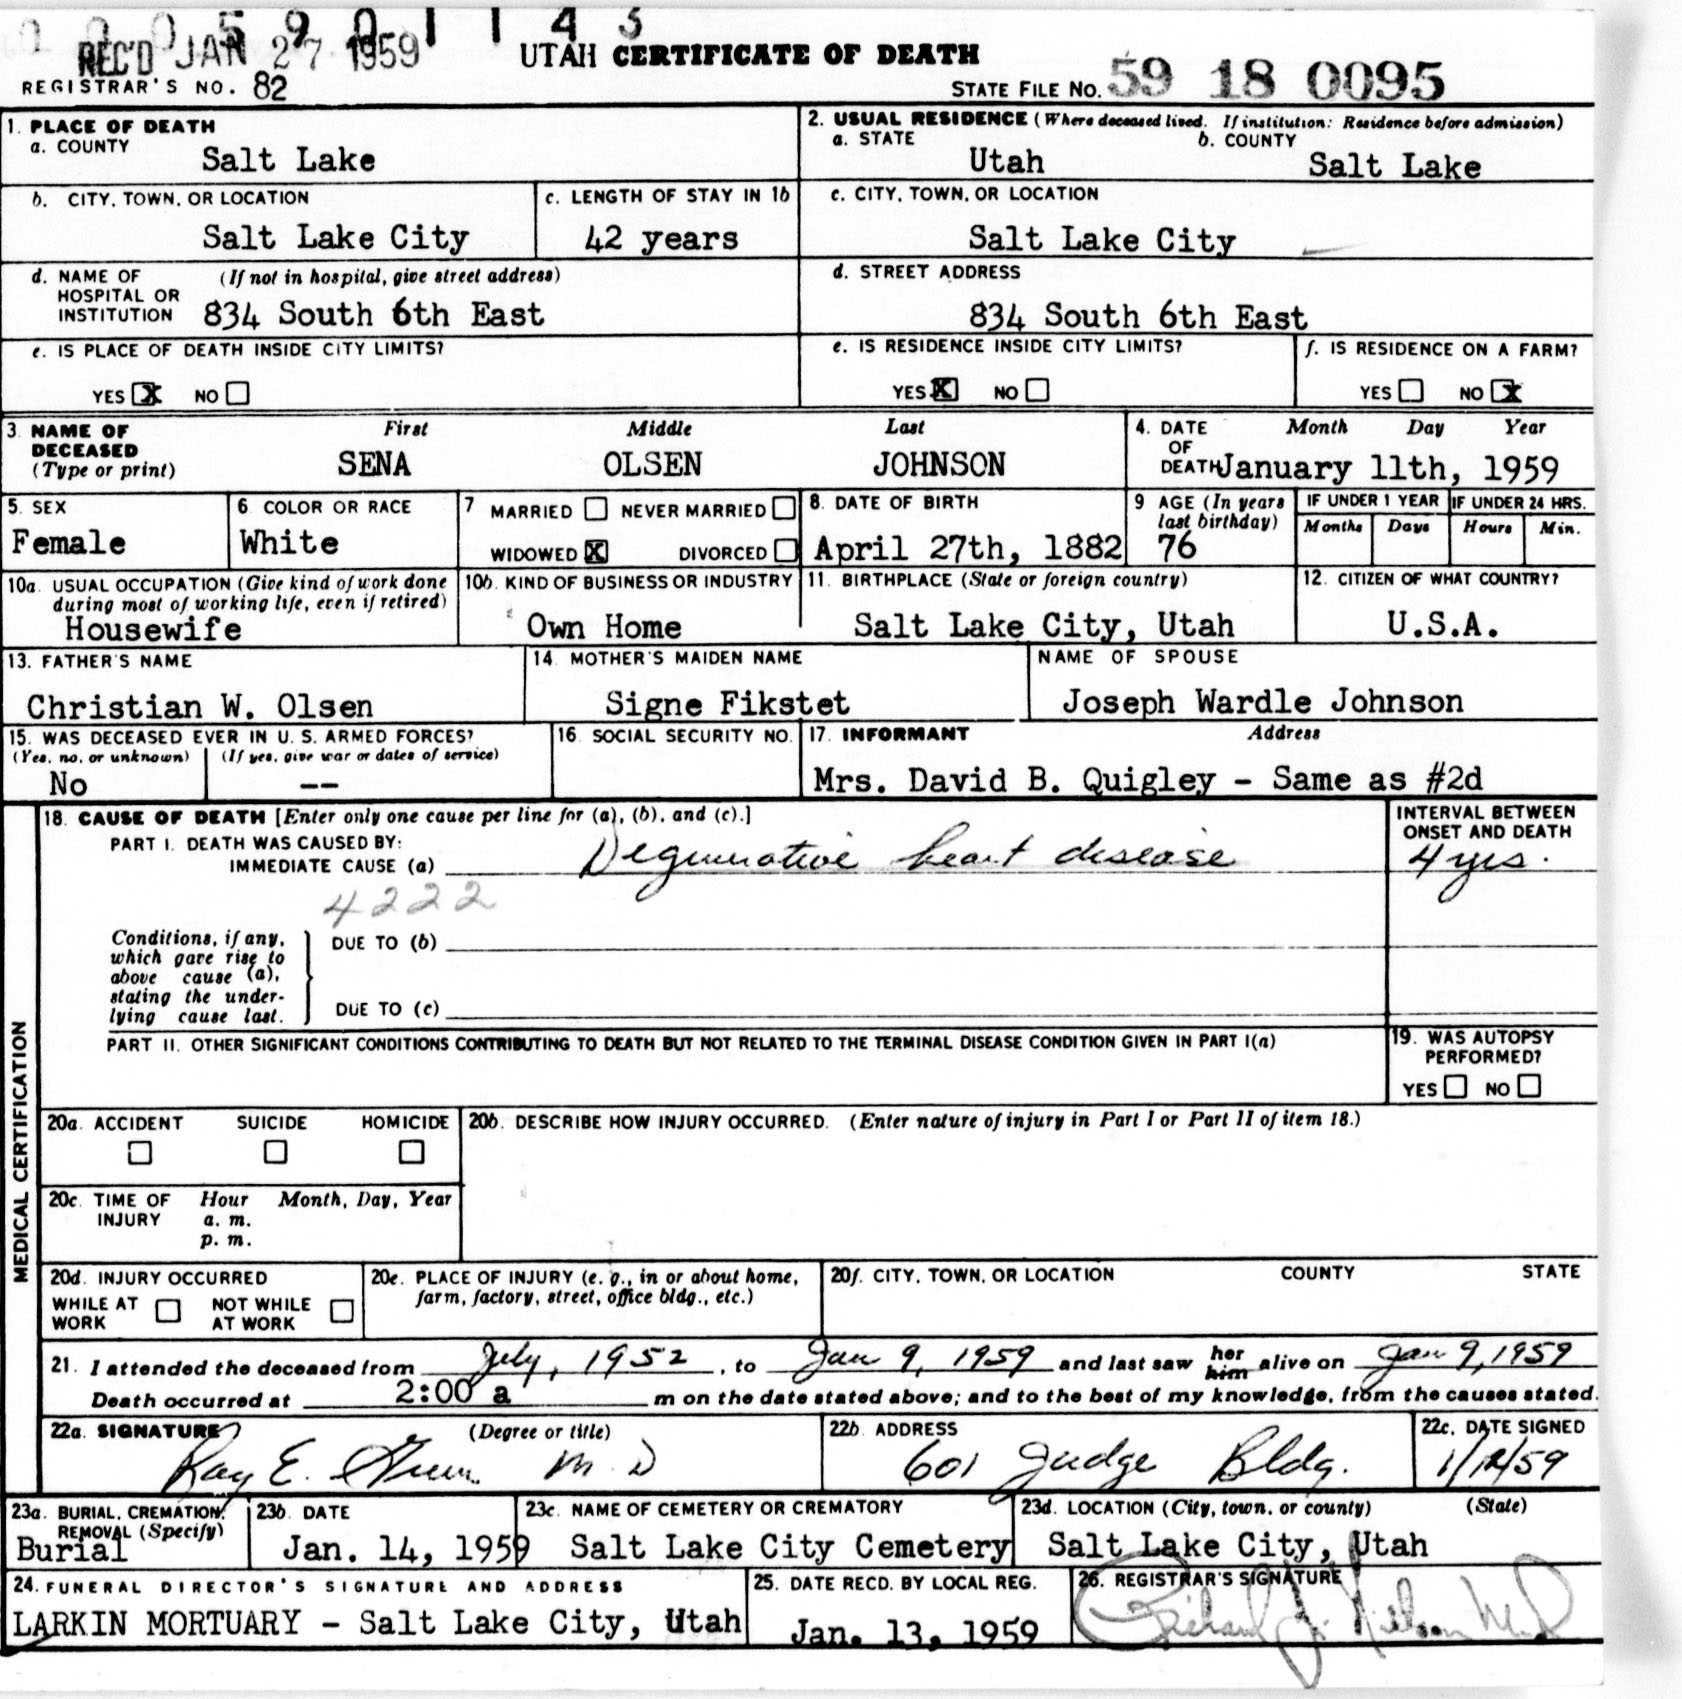 0 0 0 5 9 0 1 1 4 3
REC'D JAN 27 1959 UTAH CERTIFICATE OF DEATH
REGISTRAR'S NO. 82 STATE FILE No. 59 18 0095
1. PLACE OF DEATH
a. COUNTY Salt Lake
2. USUAL RESIDENCE (Where deceased lived. If institution: Residence before admission)
a. STATE Utah b. COUNTY Salt Lake
b. CITY, TOWN, OR LOCATION Salt Lake City
c. LENGTH OF STAY IN 1b 42 years
c. CITY, TOWN, OR LOCATION Salt Lake City
d. NAME OF HOSPITAL OR INSTITUTION (If not in hospital, give street address) 834 South 6th East
d. STREET ADDRESS 834 South 6th East
e. IS PLACE OF DEATH INSIDE CITY LIMITS?
YES X NO
e. IS RESIDENCE INSIDE CITY LIMITS?
YES X NO
f. IS RESIDENCE ON A FARM?
YES NO X
3. NAME OF DECEASED (Type or print) First Middle Last
SENA OLSEN JOHNSON
4. DATE OF DEATH Month Day Year
January 11th, 1959
5. SEX Female
6. COLOR OR RACE White
7 MARRIED NEVER MARRIED
WIDOWED X DIVORCED
8. DATE OF BIRTH April 27th, 1882
9 AGE (In years last birthday) 76
IF UNDER 1 YEAR Months Days
IF UNDER 24 HRS. Hours Min.
10a. USUAL OCCUPATION (Give kind of work done during most of working life, even if retired) Housewife
10b. KIND OF BUSINESS OR INDUSTRY Own Home
11. BIRTHPLACE (State or foreign country) Salt Lake City, Utah
12. CITIZEN OF WHAT COUNTRY? U.S.A.
13. FATHER'S NAME Christian W. Olsen
14. MOTHER'S MAIDEN NAME Signe Fikstet
NAME OF SPOUSE Joseph Wardle Johnson
15. WAS DECEASED EVER IN U. S. ARMED FORCES?
(Yes, no, or unknown) No (If yes, give war or dates of service) --
16. SOCIAL SECURITY NO.
17. INFORMANT Address
Mrs. David B. Quigley - Same as #2d
MEDICAL CERTIFICATION
18. CAUSE OF DEATH [Enter only one cause per line for (a), (b), and (c).]
PART I. DEATH WAS CAUSED BY:
IMMEDIATE CAUSE (a) Degenerative heart disease
INTERVAL BETWEEN ONSET AND DEATH
4 yrs.
4222
Conditions, if any, which gave rise to above cause (a), stating the underlying cause last.
DUE TO (b)
DUE TO (c)
PART II. OTHER SIGNIFICANT CONDITIONS CONTRIBUTING TO DEATH BUT NOT RELATED TO THE TERMINAL DISEASE CONDITION GIVEN IN PART I(a)
19. WAS AUTOPSY PERFORMED?
YES NO
20a. ACCIDENT SUICIDE HOMICIDE
20b. DESCRIBE HOW INJURY OCCURRED. (Enter nature of injury in Part I or Part II of item 18.)
20c. TIME OF INJURY Hour Month, Day, Year
a. m.
p. m.
20d. INJURY OCCURRED
WHILE AT WORK NOT WHILE AT WORK
20e. PLACE OF INJURY (e. g., in or about home, farm, factory, street, office bldg., etc.)
20f. CITY, TOWN, OR LOCATION COUNTY STATE
21. I attended the deceased from July, 1952, to Jan 9, 1959 and last saw her him alive on Jan 9, 1959
Death occurred at 2:00 a m on the date stated above; and to the best of my knowledge, from the causes stated.
22a. SIGNATURE (Degree or title)
Ray E. M. D
22b. ADDRESS 601 Judge Bldg.
22c. DATE SIGNED 1/12/59
23a. BURIAL, CREMATION, REMOVAL (Specify) Burial
23b. DATE Jan. 14, 1959
23c. NAME OF CEMETERY OR CREMATORY Salt Lake City Cemetery
23d. LOCATION (City, town, or county) (State) Salt Lake City, Utah
24. FUNERAL DIRECTOR'S SIGNATURE AND ADDRESS
LARKIN MORTUARY - Salt Lake City, Utah
25. DATE RECD. BY LOCAL REG. Jan. 13, 1959
26. REGISTRAR'S SIGNATURE
Richard J. Nielson M.D